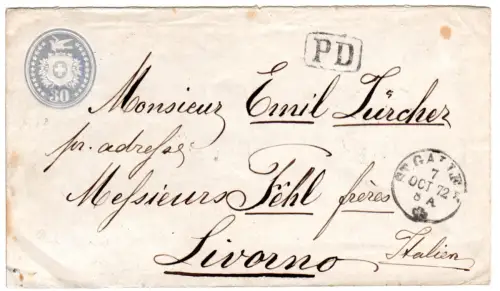 30
PD
Monsieur Emil Zürcher
pr. adresse
Messieurs Fehl frères
ST. GALLEN
7
OCT 72
8 A
Livorno
Italien